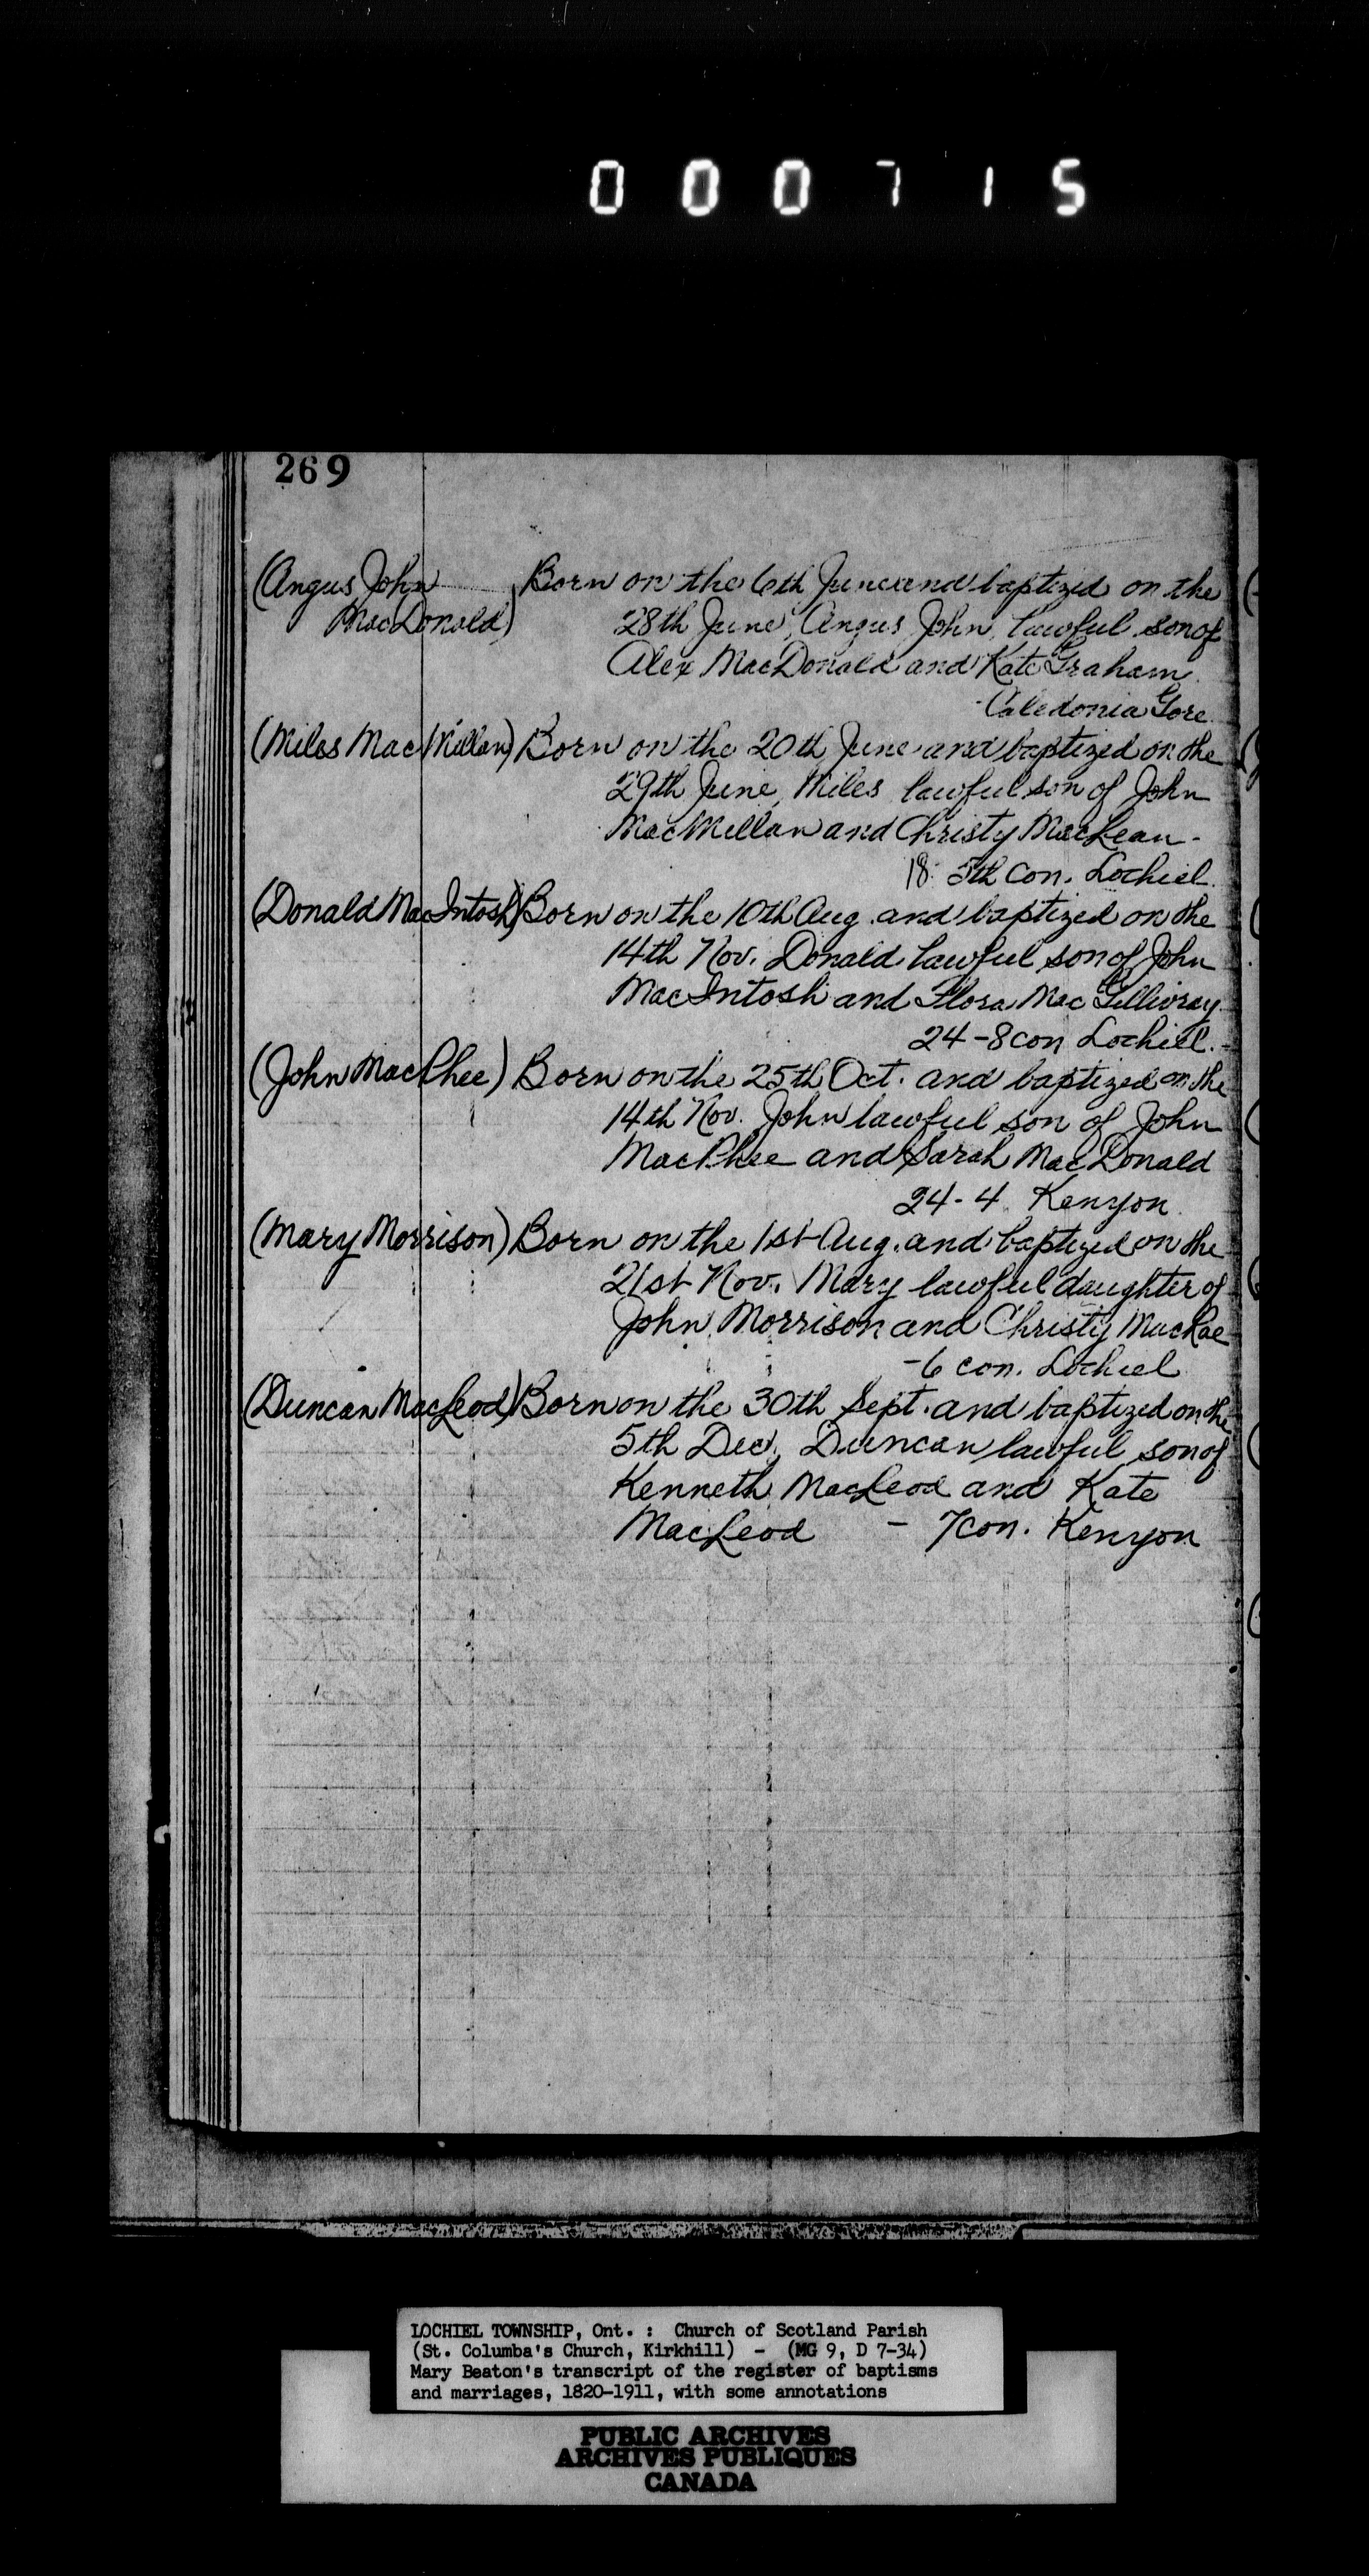 000715
269
(Angus John Born on the 6th June and baptized on the
MacDonald) 28th June, Angus John, lawful son of
Alex MacDonald and Kate Graham
- Caledonia Gore.
(Miles MacMillan) Born on the 20th June and baptized on the
29th June, Miles lawful son of John
MacMillan and Christy MacLean -
18 5th Con. Lochiel.
(Donald MacIntosh) Born on the 10th Aug. and baptized on the
14th Nov. Donald lawful son of John
MacIntosh and Flora MacGillivray.
24-8 con Lochiel.-
(John MacPhee) Born on the 25th Oct. and baptized on the
14th Nov. John lawful son of John
MacPhee and Sarah MacDonald
24-4 Kenyon.
(Mary Morrison) Born on the 1st Aug. and baptized on the
21st Nov. Mary lawful daughter of
John Morrison and Christy MacRae
-6 con. Lochiel
(Duncan MacLeod) Born on the 30th Sept. and baptized on the
5th Dec. Duncan lawful son of
Kenneth MacLeod and Kate
MacLeod - 7 con. Kenyon
LOCHIEL TOWNSHIP, Ont. : Church of Scotland Parish
(St. Columba's Church, Kirkhill) - (MG 9, D 7-34)
Mary Beaton's transcript of the register of baptisms
and marriages, 1820-1911, with some annotations
PUBLIC ARCHIVES
ARCHIVES PUBLIQUES
CANADA